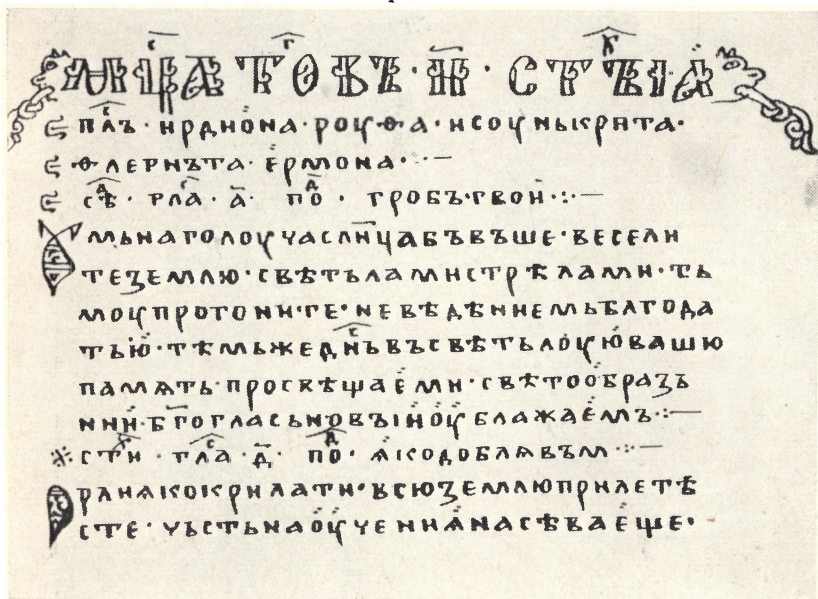 М҃ЦА ТОГОВЪ · И҃ · СТЪІꙖ
ПЛ҃Ъ · ИРДИѠНА · РОУФА · ИСОУНЬКРИТА ·
ФЛЕГЪНТА · ЕРМОНА · : —
СѢ · ГЛА · А҃ · ПО · ГРОБЪТВОИ · : · —
МЬНАГОЛОУЧАСЛН҃ЦАБЪВЪШЕ · ВЕСЕЛИ
ТЕЗЕМЛЮ · СВѢТЪЛАМИСТРѢЛАМИ · ТЬ
МОУПРОГОНИТЕ · НЕВѢДѢНИЕМЬБЛАГОДА
ТЬЮ · ТѢМЬЖЕДН҃ЬВЪСВѢТЬЛОУЮВАШЮ
ПАМѦТЬ · ПРОСВѢЩАЕМИ · СВѢТООБРАЗЬ
НИИ · БГ҃ОГЛАСЬНОВЪІИОУБЛАЖАЕМЪ · : —
СТИ · ГЛА · Д҃ · ПО · ꙖКОДОБЛѦВЪМ · : —
РЛИѦКОКРИЛАТИ · ВСЮЗЕМЛЮПРИЛЕТѢ
СТЕ · ЧЬСТЬНАОУЧЕНИꙖНАСѢВАЕЩЕ ·